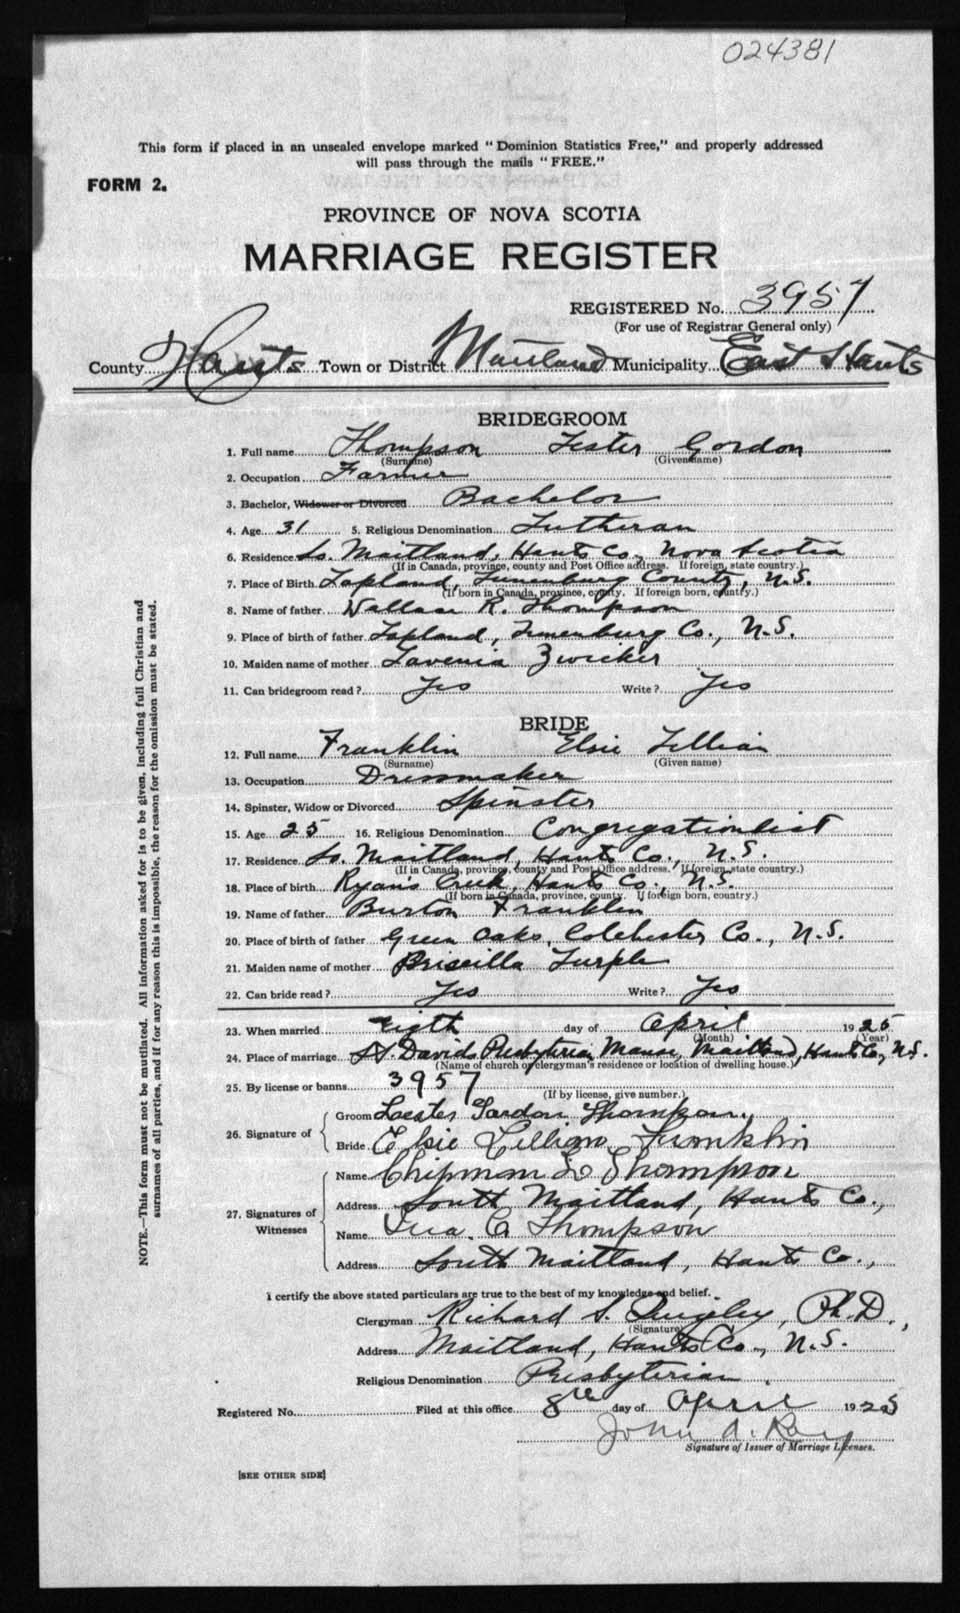 024381
This form if placed in an unsealed envelope marked "Dominion Statistics Free," and properly addressed
will pass through the mails "FREE."
FORM 2.
PROVINCE OF NOVA SCOTIA
MARRIAGE REGISTER
REGISTERED No. 3957
(For use of Registrar General only)
County Hants Town or District Maitland Municipality East Hants
BRIDEGROOM
1. Full name Thompson Lester Gordon
(Surname) (Given name)
2. Occupation Farmer
3. Bachelor, Widower or Divorced Bachelor
4. Age 31 5. Religious Denomination Lutheran
6. Residence So. Maitland, Hants Co., Nova Scotia
(If in Canada, province, county and Post Office address. If foreign, state country.)
7. Place of Birth Lapland, Lunenburg County, N.S.
(If born in Canada, province, county. If foreign born, country.)
8. Name of father Wallace R. Thompson
9. Place of birth of father Lapland, Lunenburg Co., N.S.
10. Maiden name of mother Lavenia Zwicker
11. Can bridegroom read? Yes Write? Yes
BRIDE
12. Full name Franklin Elsie Lillian
(Surname) (Given name)
13. Occupation Dressmaker
14. Spinster, Widow or Divorced Spinster
15. Age 25 16. Religious Denomination Congregationlist
17. Residence So. Maitland, Hants Co., N.S.
(If in Canada, province, county and Post Office address. If foreign, state country.)
18. Place of birth Ryan's Creek, Hants Co., N.S.
(If born in Canada, province, county. If foreign born, country.)
19. Name of father Burton Franklin
20. Place of birth of father Green Oaks, Colchester Co., N.S.
21. Maiden name of mother Priscilla Turple
22. Can bride read? Yes Write? Yes
23. When married eigth day of April 1925
(Month) (Year)
24. Place of marriage St. Davids Presbyterian Manse, Maitland, Hants Co., N.S.
(Name of church or clergyman's residence or location of dwelling house.)
25. By license or banns 3957
(If by license, give number.)
26. Signature of
Groom Lester Gordon Thompson
Bride Elsie Lillian Franklin
27. Signatures of Witnesses
Name Chipman L. Thompson
Address South Maitland, Hants Co.,
Name C Thompson
Address South Maitland, Hants Co.,
I certify the above stated particulars are true to the best of my knowledge and belief.
Clergyman Richard S. Ph.D.,
(Signature)
Address Maitland, Hants Co., N.S.
Religious Denomination Presbyterian
Registered No. Filed at this office 8th day of April 1925
John A. Roy
Signature of Issuer of Marriage Licenses.
[SEE OTHER SIDE]
NOTE.—This form must not be mutilated. All information asked for is to be given, including full Christian and
surnames of all parties, and if for any reason this is impossible, the reason for the omission must be stated.